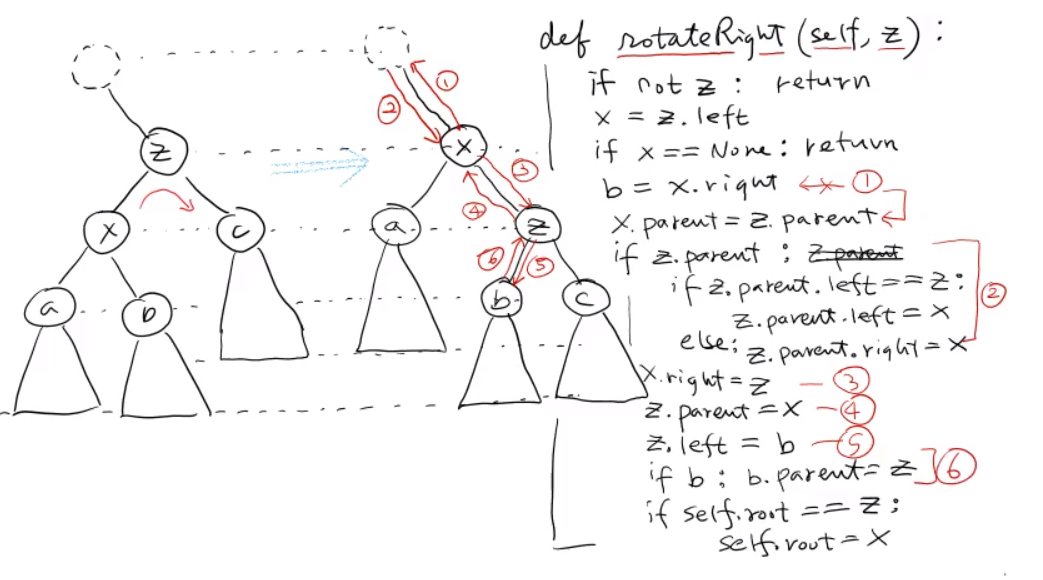 def rotateRight (self, z) :
if not z : return
x = z.left
if x == None : return
b = x.right ①
x.parent = z.parent
if z.parent : z.parent
if z.parent.left == z :
z.parent.left = x
②
else : z.parent.right = x
x.right = z — ③
z.parent = x — ④
z.left = b — ⑤
if b : b.parent = z ] ⑥
if self.root == z :
self.root = x
z
x
c
a
b
①
②
x
③
④
a
z
⑥
⑤
b
c